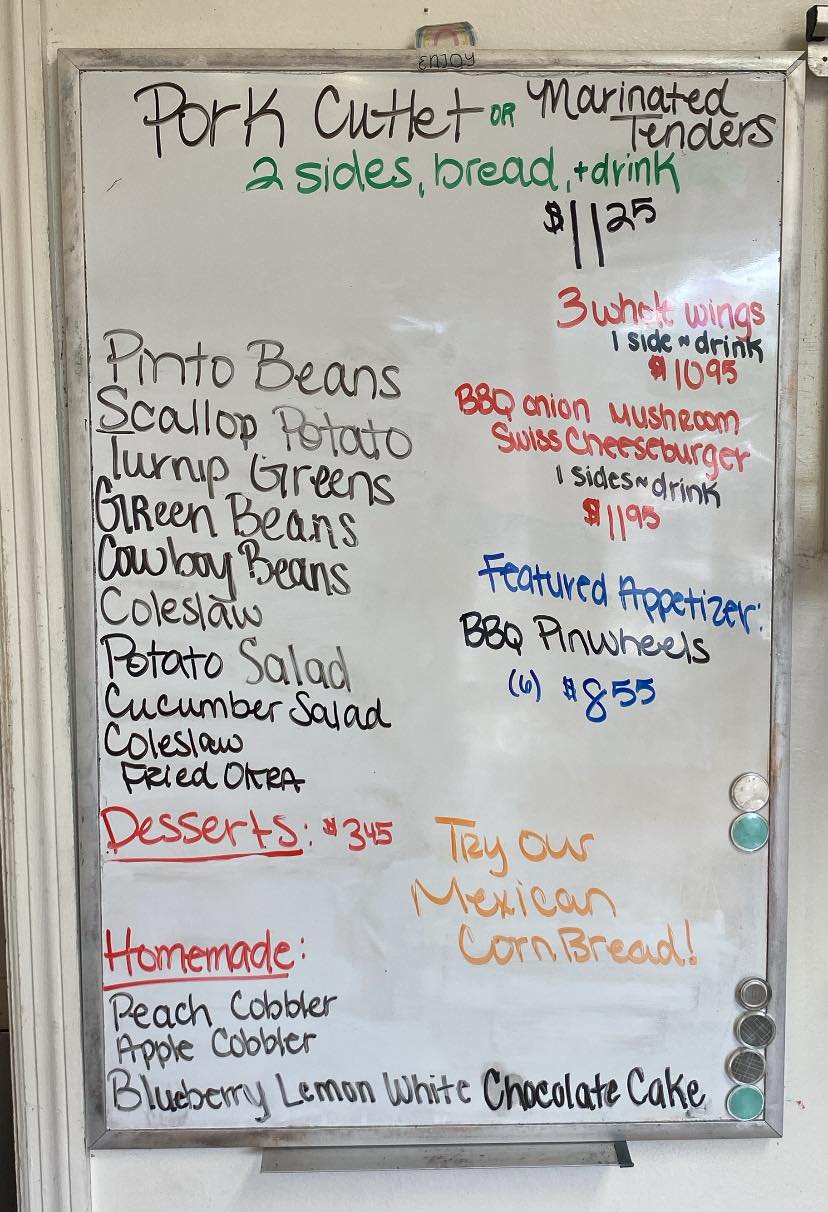 ENJOY
Pork Cutlet OR Marinated Tenders
2 sides, bread, + drink
$11 25
3 whole wings
1 side ~ drink
$10 95
BBQ onion Mushroom
Swiss Cheeseburger
1 sides ~ drink
$11 95
Featured Appetizer:
BBQ Pinwheels
(6) $8 55
Pinto Beans
Scallop Potato
Turnip Greens
Green Beans
Cowboy Beans
Coleslaw
Potato Salad
Cucumber Salad
Coleslaw
Fried OKRA
Desserts: $3 45
Try our
Mexican
Corn Bread!
Homemade:
Peach Cobbler
Apple Cobbler
Blueberry Lemon White Chocolate Cake